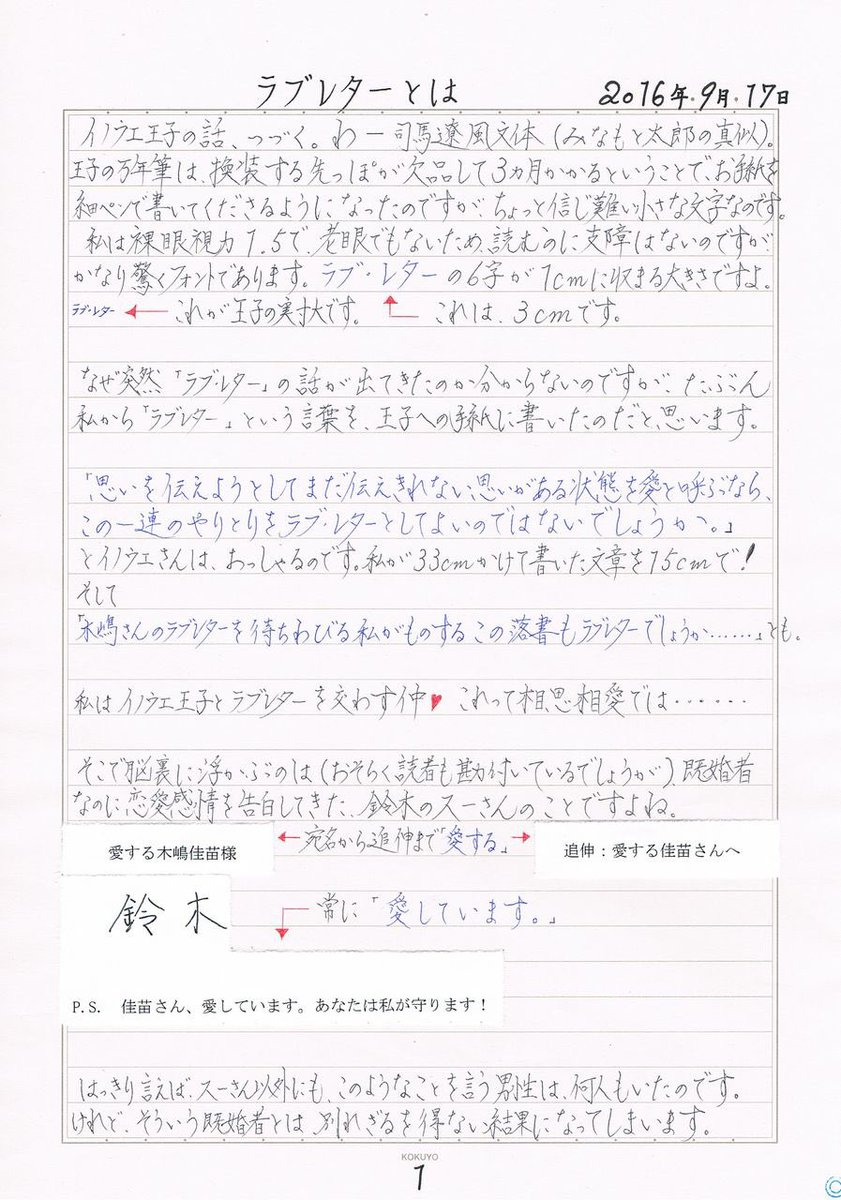 ラブレターとは 2016年.9月.17日
イノウエ王子の話、つづく。わー司馬遼風文体(みなもと太郎の真似)。
王子の万年筆は、換装する先っぽが欠品して3ヵ月かかるということで、お手紙を
細ペンで書いてくださるようになったのですが、ちょっと信じ難い小さな文字なのです。
私は裸眼視力1.5で、老眼でもないため、読むのに支障はないのですが
かなり驚くフォントであります。ラブ・レターの6字が1cmに収まる大きさですよ。
ラブ・レター ← これが王子の実寸大です。 これは、3cmです。
なぜ突然「ラブ・レター」の話が出てきたのか分からないのですが、たぶん
私から「ラブレター」という言葉を、王子への手紙に書いたのだと思います。
「思いを伝えようとしてまだ伝えきれない思いがある状態を愛と呼ぶなら、
この一連のやりとりをラブ・レターとしてよいのではないでしょうか。」
とイノウエさんは、おっしゃるのです。私が33cmかけて書いた文章を15cmで!
そして
「木嶋さんのラブレターを待ちわびる私がものするこの落書もラブレターでしょうか……」とも。
私はイノウエ王子とラブレターを交わす仲♥ これって相思相愛では……
そこで脳裏に浮かぶのは(おそらく読者も勘付いているでしょうが)、既婚者
なのに恋愛感情を告白してきた、鈴木のスーさんのことですよね。
愛する木嶋佳苗様 ← 宛名から追伸まで「愛する」 → 追伸:愛する佳苗さんへ
鈴木 常に「愛しています。」
P.S. 佳苗さん、愛しています。あなたは私が守ります!
はっきり言えば、スーさん以外にも、このようなことを言う男性は、何人もいたのです。
けれど、そういう既婚者とは、別れざるを得ない結果になってしまいます。
KOKUYO
1
©